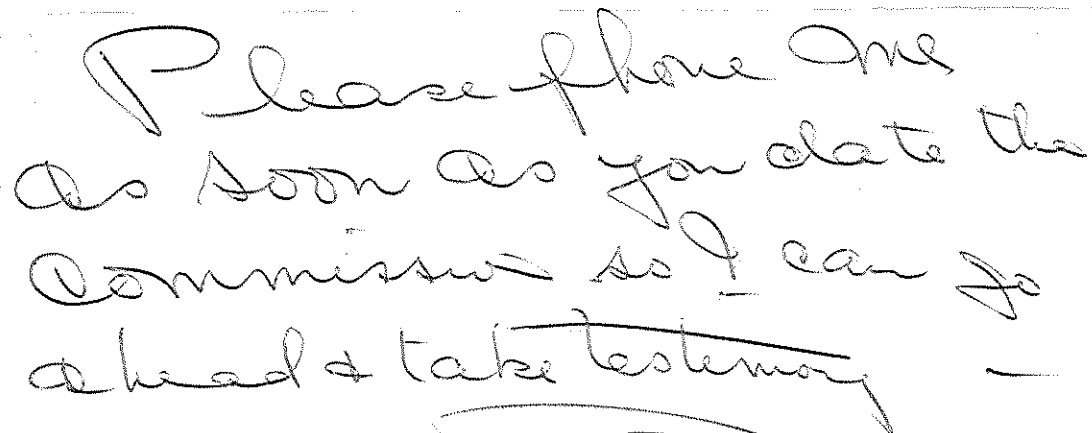 Please phone me
as soon as you date the
Commission so I can go
ahead & take testimony —